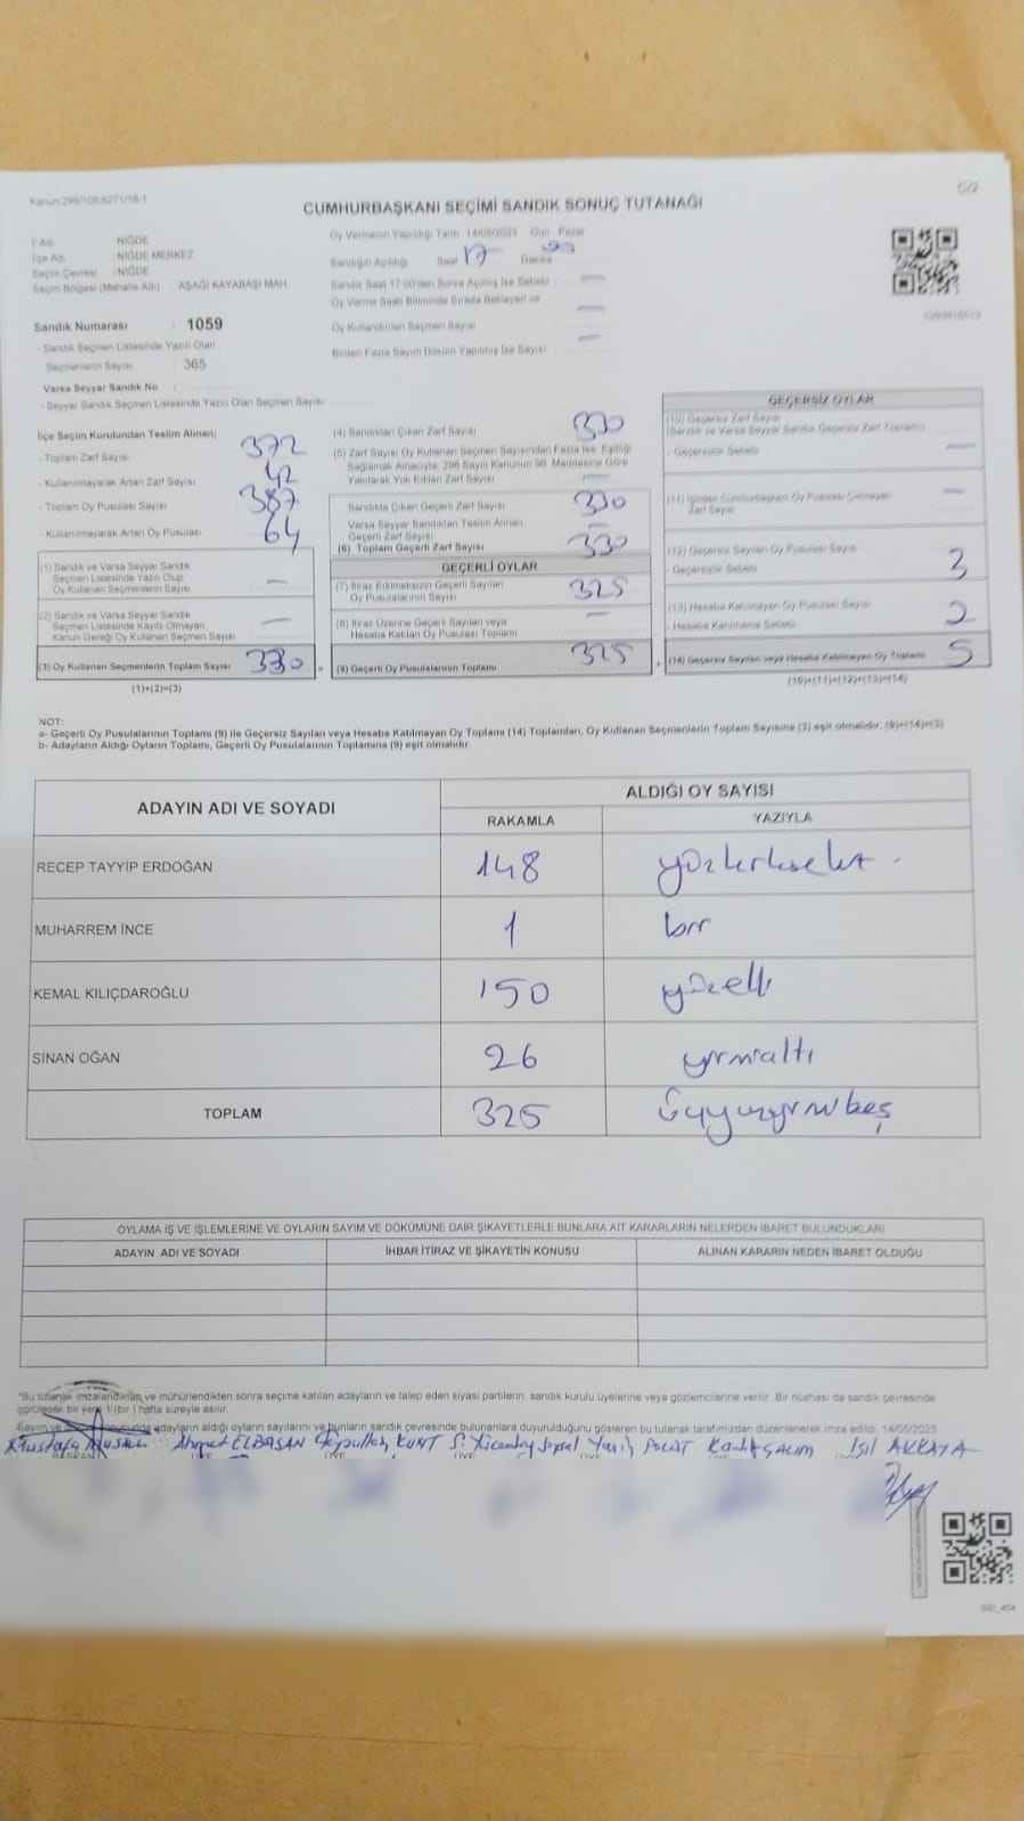 5/2
CUMHURBAŞKANI SEÇİMİ SANDIK SONUÇ TUTANAĞI
İl Adı : NİĞDE
İlçe Adı : NİĞDE MERKEZ
Seçim Çevresi : NİĞDE
Seçim Bölgesi (Mahalle Adı) : AŞAĞI KAYABAŞI MAH.
Oy Vermenin Yapıldığı Tarih: 14/05/2023 Gün: Pazar
Sandığın Açıldığı Saat 17 Dakika
Sandık Saat 17:00'den Sonra Açılmış İse Sebebi —
Oy Verme Saati Bitiminde Sırada Bekleyen ve
Oy Kullandırılan Seçmen Sayısı —
Birden Fazla Sayım Döküm Yapılmış İse Sayısı —
Sandık Numarası : 1059
- Sandık Seçmen Listesinde Yazılı Olan
Seçmenlerin Sayısı : 365
Varsa Seyyar Sandık No :
- Seyyar Sandık Seçmen Listesinde Yazılı Olan Seçmen Sayısı:
İlçe Seçim Kurulundan Teslim Alınan;
- Toplam Zarf Sayısı 372
- Kullanılmayarak Artan Zarf Sayısı 42
- Toplam Oy Pusulası Sayısı 387
- Kullanılmayarak Artan Oy Pusulası 64
(1) Sandık ve Varsa Seyyar Sandık
Seçmen Listesinde Yazılı Olup
Oy Kullanan Seçmenlerin Sayısı —
(2) Sandık ve Varsa Seyyar Sandık
Seçmen Listesinde Kayıtlı Olmayan
Kanun Gereği Oy Kullanan Seçmen Sayısı —
(3) Oy Kullanan Seçmenlerin Toplam Sayısı 330
(1)+(2)=(3)
(4) Sandıktan Çıkan Zarf Sayısı 330
(5) Zarf Sayısı Oy Kullanan Seçmen Sayısından Fazla İse, Eşitliği
Sağlamak Amacıyla, 298 Sayılı Kanunun 98. Maddesine Göre
Yakılarak Yok Edilen Zarf Sayısı —
Sandıkta Çıkan Geçerli Zarf Sayısı 330
Varsa Seyyar Sandıktan Teslim Alınan
Geçerli Zarf Sayısı —
(6) Toplam Geçerli Zarf Sayısı 330
GEÇERLİ OYLAR
(7) İtiraz Edilmeksizin Geçerli Sayılan
Oy Pusulalarının Sayısı 325
(8) İtiraz Üzerine Geçerli Sayılan veya
Hesaba Katılan Oy Pusulası Toplamı —
(9) Geçerli Oy Pusulalarının Toplamı 325
GEÇERSİZ OYLAR
(10) Geçersiz Zarf Sayısı
(Sandık ve Varsa Seyyar Sandık Geçersiz Zarf Toplamı)
- Geçersizlik Sebebi —
Zarf Sayısı —
(12) Geçersiz Sayılan Oy Pusulası Sayısı 3
- Geçersizlik Sebebi
(13) Hesaba Katılmayan Oy Pusulası Sayısı 2
- Hesaba Katılmama Sebebi
(14) Geçersiz Sayılan veya Hesaba Katılmayan Oy Toplamı 5
(10)+(11)+(12)+(13)=(14)
NOT:
a- Geçerli Oy Pusulalarının Toplamı (9) ile Geçersiz Sayılan veya Hesaba Katılmayan Oy Toplamı (14) Toplamları, Oy Kullanan Seçmenlerin Toplam Sayısına (3) eşit olmalıdır. (9)+(14)=(3)
b- Adayların Aldığı Oyların Toplamı, Geçerli Oy Pusulalarının Toplamına (9) eşit olmalıdır.
ADAYIN ADI VE SOYADI ALDIĞI OY SAYISI
RAKAMLA YAZIYLA
RECEP TAYYİP ERDOĞAN 148 yüzkırksekiz
MUHARREM İNCE 1 bir
KEMAL KILIÇDAROĞLU 150 yüzelli
SİNAN OĞAN 26 yirmialtı
TOPLAM 325 üçyüzyirmibeş
OYLAMA İŞ VE İŞLEMLERİNE VE OYLARIN SAYIM VE DÖKÜMÜNE DAİR ŞİKAYETLERLE BUNLARA AİT KARARLARIN NELERDEN İBARET BULUNDUKLARI
ADAYIN ADI VE SOYADI İHBAR İTİRAZ VE ŞİKAYETİN KONUSU ALINAN KARARIN NEDEN İBARET OLDUĞU
"Bu tutanak imzalandıktan ve mühürlendikten sonra seçime katılan adayların ve talep eden siyasi partilerin, sandık kurulu üyelerine veya gözlemcilerine verilir. Bir nüshası da sandık çevresinde
görülecek bir yere 1 (bir) hafta süreyle asılır.
adayların aldığı oyların sayılarını ve bunların sandık çevresinde bulunanlara duyurulduğunu gösteren bu tutanak tarafımızdan düzenlenerek imza edildi. 14/05/2023
Mustafa Ahmet ELBASAN KURT Yasin POLAT Kadir Işıl AKKAYA